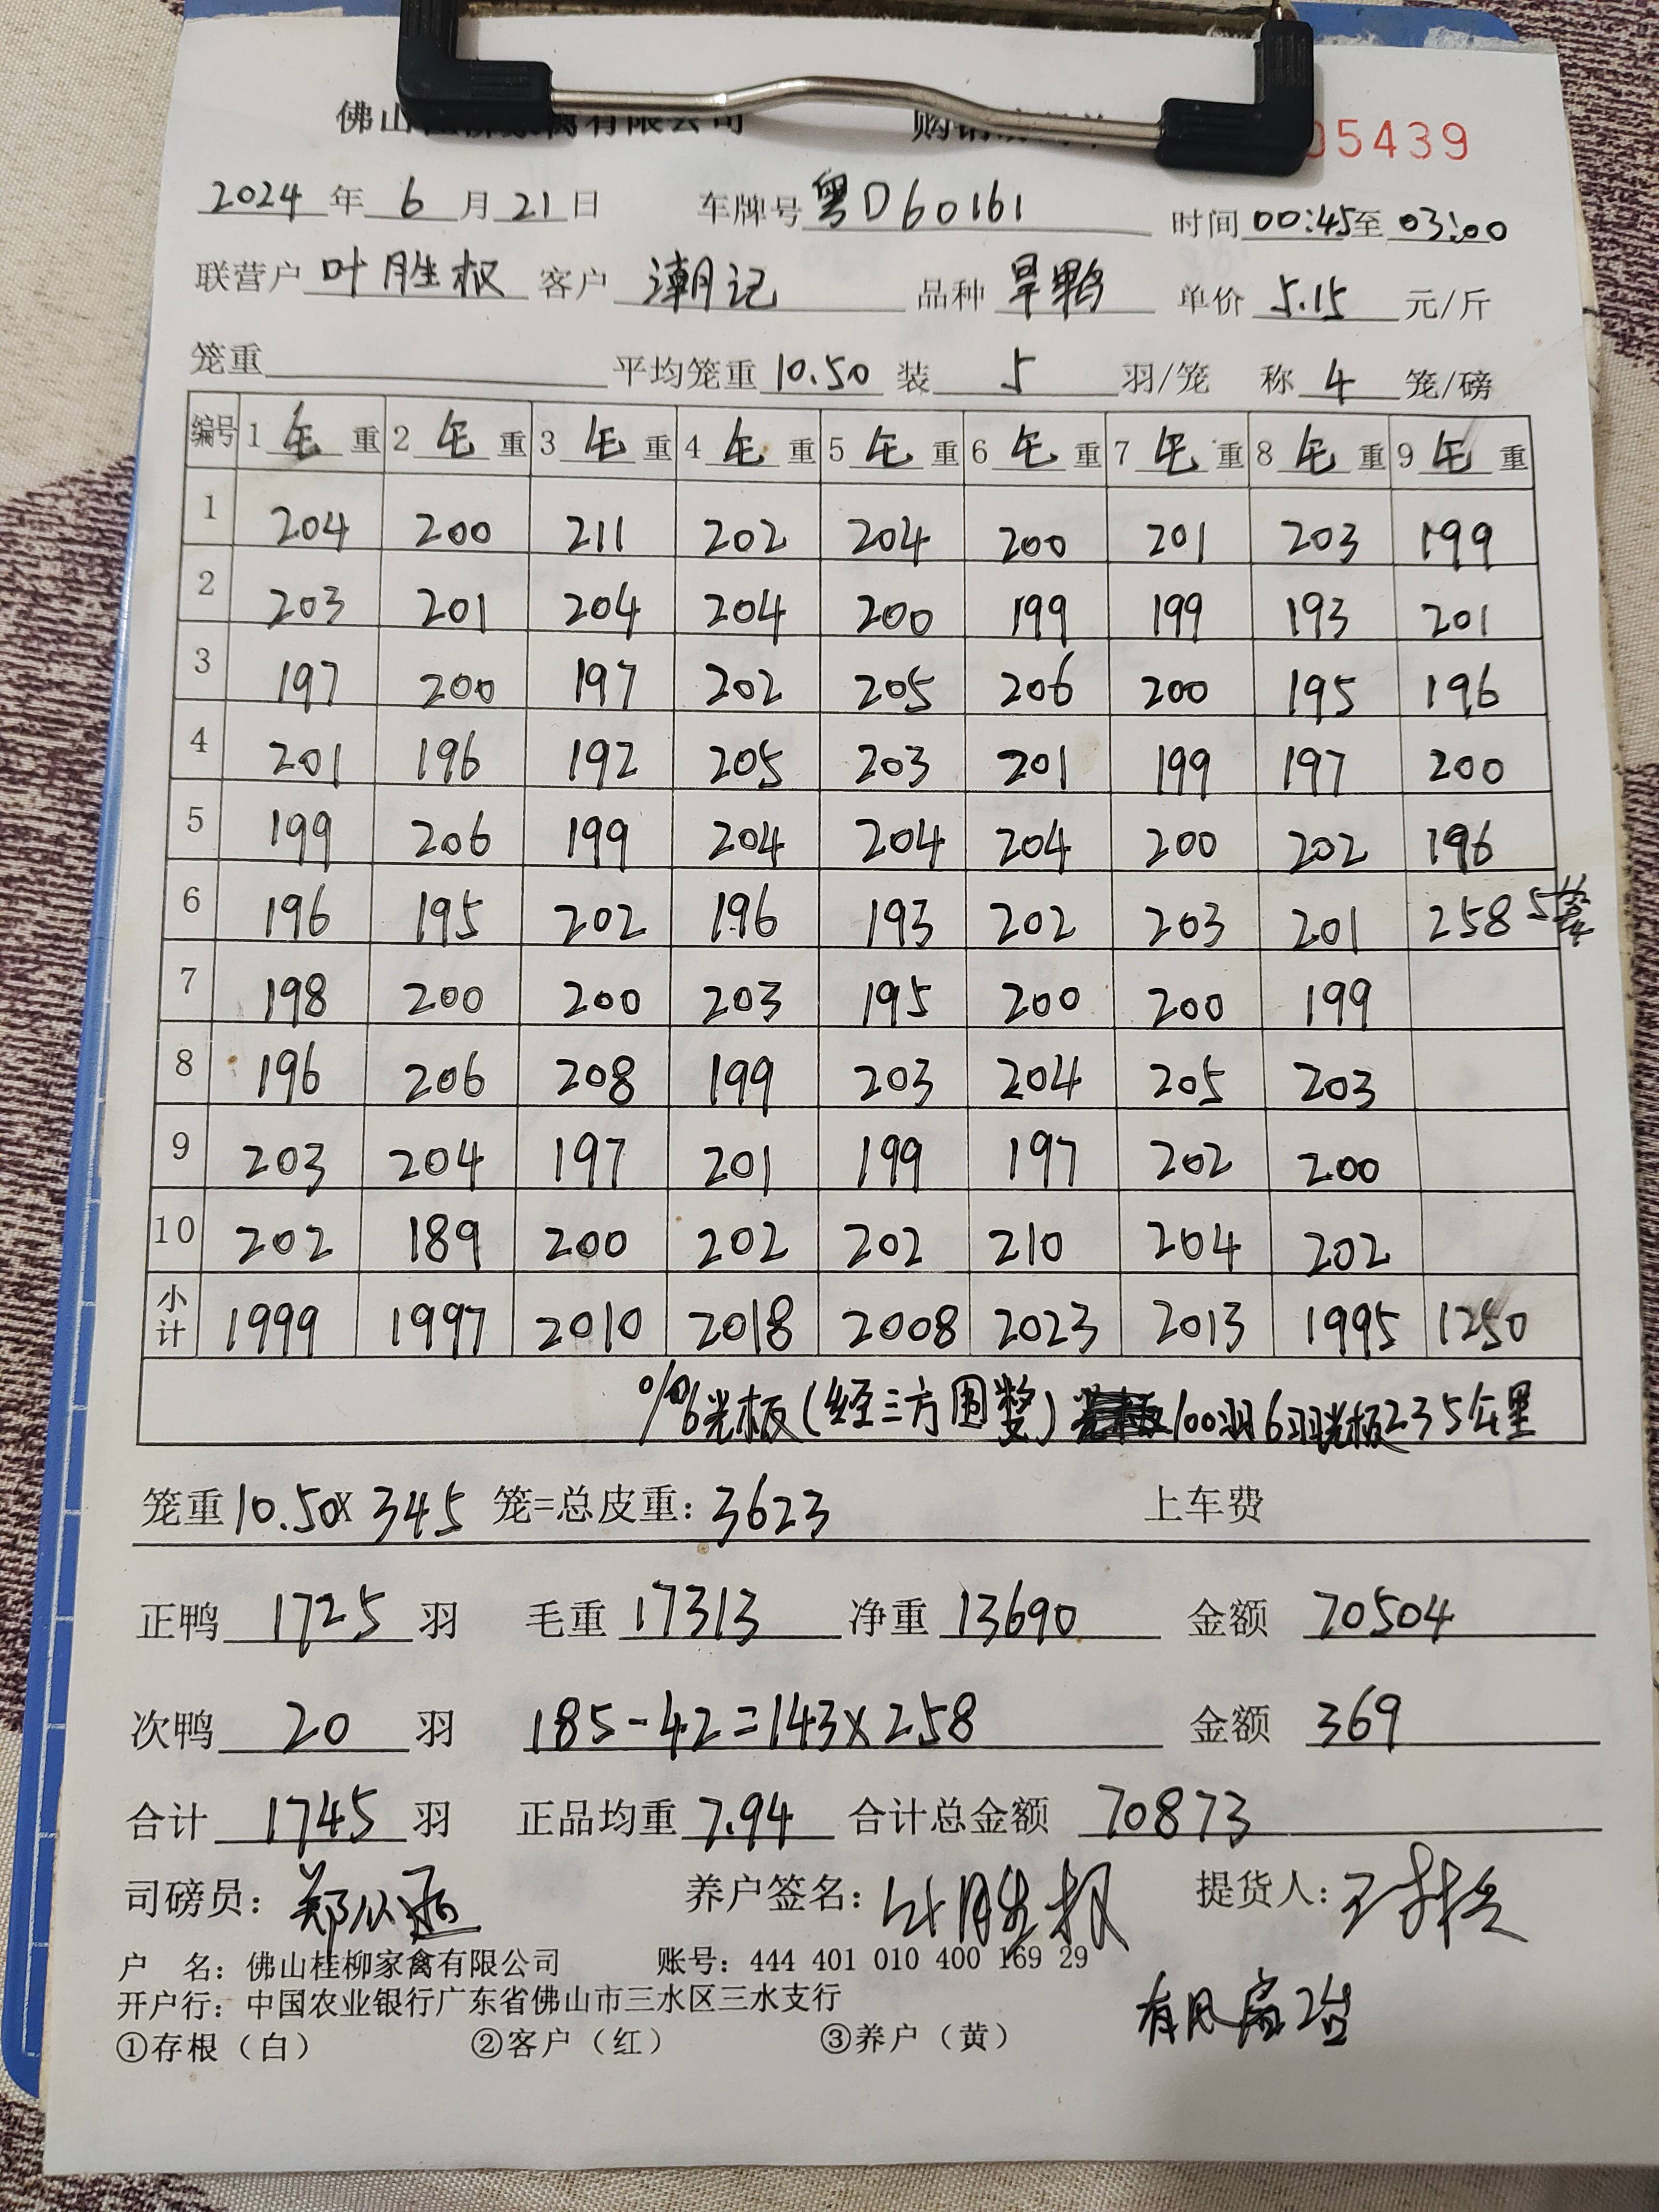 佛山 家禽有限公司 购销 05439
2024年6月21日 车牌号粤D60161 时间00:45至03:00
联营户叶胜权 客户潮记 品种旱鸭 单价5.15元/斤
笼重 平均笼重10.50 装5羽/笼 称4笼/磅
编号 1毛重 2毛重 3毛重 4毛重 5毛重 6毛重 7毛重 8毛重 9毛重
1 204 200 211 202 204 200 201 203 199
2 203 201 204 204 200 199 199 193 201
3 197 200 197 202 205 206 200 195 196
4 201 196 192 205 203 201 199 197 200
5 199 206 199 204 204 204 200 202 196
6 196 195 202 196 193 202 203 201 258 5笼
7 198 200 200 203 195 200 200 199
8 196 206 208 199 203 204 205 203
9 203 204 197 201 199 197 202 200
10 202 189 200 202 202 210 204 202
小计 1999 1997 2010 2018 2008 2023 2013 1995 1250
光板(经三方围整) 100羽6羽光板235毛里
笼重10.50X345笼=总皮重:3623 上车费
正鸭1725羽 毛重17313 净重13690 金额70504
次鸭20羽 185-42=143X258 金额369
合计1745羽 正品均重7.94 合计总金额70873
司磅员: 养户签名:叶胜权 提货人:
户 名:佛山桂柳家禽有限公司 账号:444 401 010 400 169 29
开户行:中国农业银行广东省佛山市三水区三水支行
有风扇2台
①存根(白) ②客户(红) ③养户(黄)